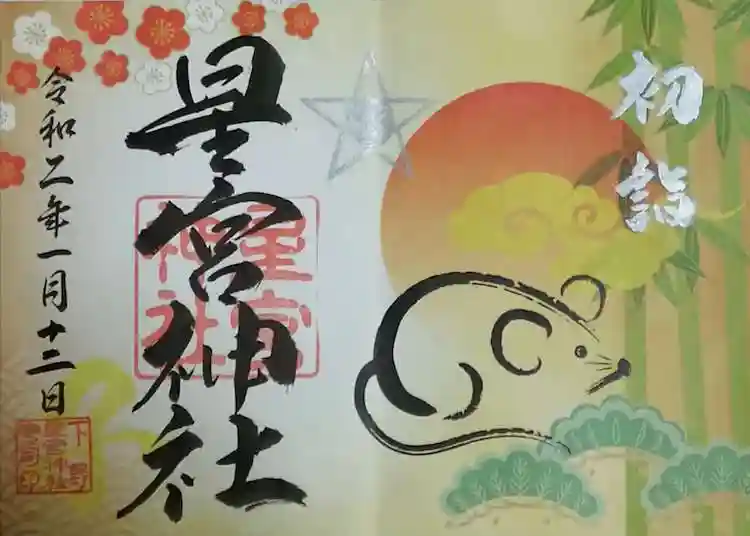 初詣
星宮神社
令和二年一月十二日
星宮
神社
下野
星宮神社